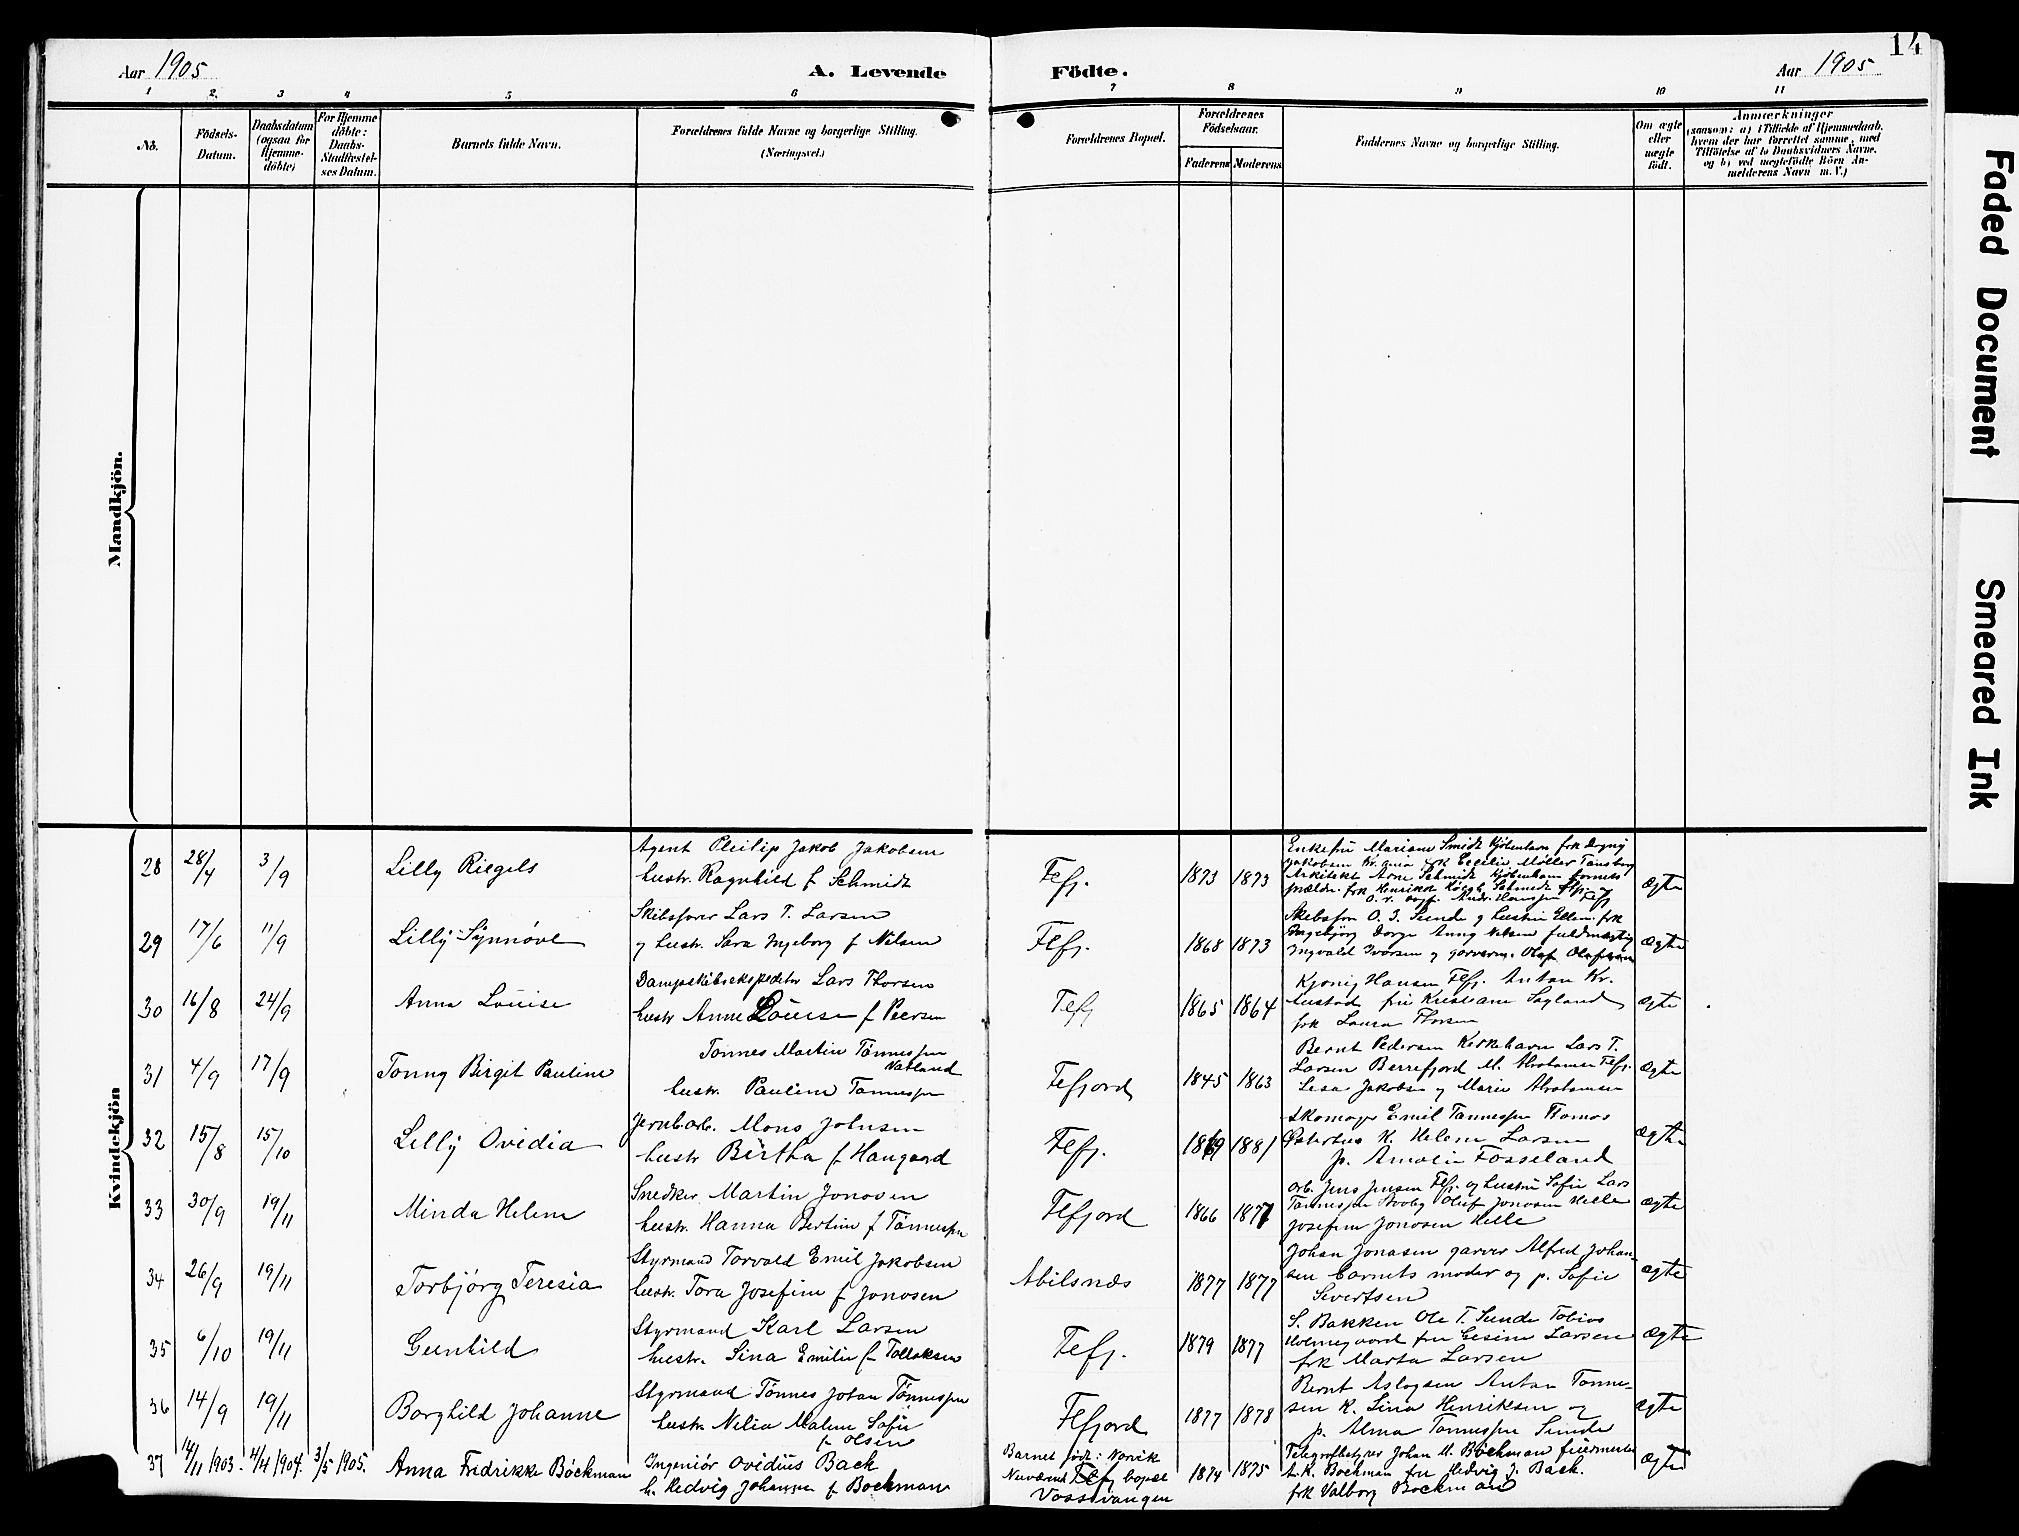 14
Aar 1905 A. Levende Födte. Aar 1905
1 2. 3 4 5 6 7 8 9 10 11
No.
Födsels-Datum.
Daabsdatum (ogsaa for Hjemmedöbte)
For Hjemmedöbte: Daabs-Stadfestelses Datum.
Barnets fulde Navn.
Foræeldrenes fulde Navne og borgerlige Stilling.
(Næringsvei.)
Forældrenes Bopæl.
Forældrenes Födselsaar.
Faderens Moderens
Faddernes Navne og borgerlige Stilling.
Om ægte eller uægte födt.
Anmærkninger
(saasom: a) i Tilfælde af Hjemmedaab.
hvem der har forrettet samme, med
Tilföielse af to Daabsvidners Navne.
og b) ved uægtefödte Börn An-
melderens Navn m. V.)
Mandkjön.
Kvindekjön
28 28/4 3/9 Lilly Riegels
Agent Philip Jakob Jakobsen
hustr. Ragnhild f Schmidt
Fefj. 1873 1873
Enkefru Mariane Smidt Kjöbenhavn frk Dagny
Jakobsen Kr.ania frk Cecilie Møller Tønsberg
Arkitekt Arne Schmidt Kjöbenhavn barnets
forældr. frk Henriette Schmidt Flfj. og
Andr. Hansen Flfj
ægte
29 17/6 11/9 Lilly Synnöve
Skibsfører Lars T. Larsen
og hustr. Sara Ingeborg f Nilsen
Flfj. 1868 1873
Skibsfør O. J. Sunde og hustru Ellen. frk
Ingebjörg Dorge Anny Nilsen fuldmægtig
Ingvald Iversen og garverm. Olaf Olufsen
ægte
30 16/8 24/9 Anna Louise
Dampskibsekspeditör Lars Thorsen
hustr Anne Louise f Peersen
Fefj 1865 1864
Kjönig Hansen Flfj. Anton Kr.
hustad fru Kristiane Sagland
frk Laura Thorsen
ægte
31 4/9 17/9 Tonny Birgit Pauline
Tönnes Martin Tönnessen
Natland
hustr. Pauline Tønnessen
Fefjord 1845 1863
Bernt Pedersen Kirkehavn Lars T.
Larsen Berrefjord M. Abrahamsen Flfj.
Lisa Jakobsen og Marie Abrahamsen
ægte
32 15/8 15/10 Lilly Ovidia
Jernb.arb. Mons Johnsen
hustr Bertha f Haugaard
Flfj. 1869 1881
Skomager Emil Tønnessen Thomas
Østerhus K. Helene Larsen
p. Amalie Fosseland
ægte
33 30/9 19/11 Minda Helene
Snedker Martin Jonasen
hustr. Hanna Bertine f Tönnessen
Flfjord 1866 1877
Arb. Jens Jensen Flfj. og hustru Sofie Lars
Tønnessen Oluf Jonasen Helle
Josefine Jonasen Helle
ægte
34 26/9 19/11 Torbjörg Teresia
Styrmand Torvald Emil Jakobsen
hustr. Tora Josefine f Jonasen
Abilsnæs 1877 1877
Johan Jonasen garver Alfred Johan-
sen barnets moder og p. Sofie
Severtsen
ægte
35 6/10 19/11 Gunhild
Styrmand Karl Larsen
hustr. Sina Emilie f Tollaksen
Fefj. 1879 1877
S. Bakken Ole T. Sunde Tobias
Holmegaard fru Lesine Larsen
frk Marta Larsen
ægte
36 14/9 19/11 Borghild Johanne
Styrmand Tönnes Johan Tönnessen
hustr. Nilia Malene Sofie
f Olsen
Flfjord 1877 1878
Bernt Aslagsen Anton Tønne-
sen K. Sina Henriksen og
p. Alma Tønnessen Sunde
ægte
37 14/11 1903. 4/4 1904. 3/5 1905. Anna Fredrikke Böckman
Ingeniör Ovidius Back
h. Hedvig Johanne f Bockman
Barnet födt: Narvik
Nuværende Flfj bopæl
Vossevangen
1874 1875
Telegrafbestyrer Johan M. Böckman
A. K. Bockman fru Hedvig J. Back.
frk Valborg Bockman
ægte
Faded Document
Smeared Ink